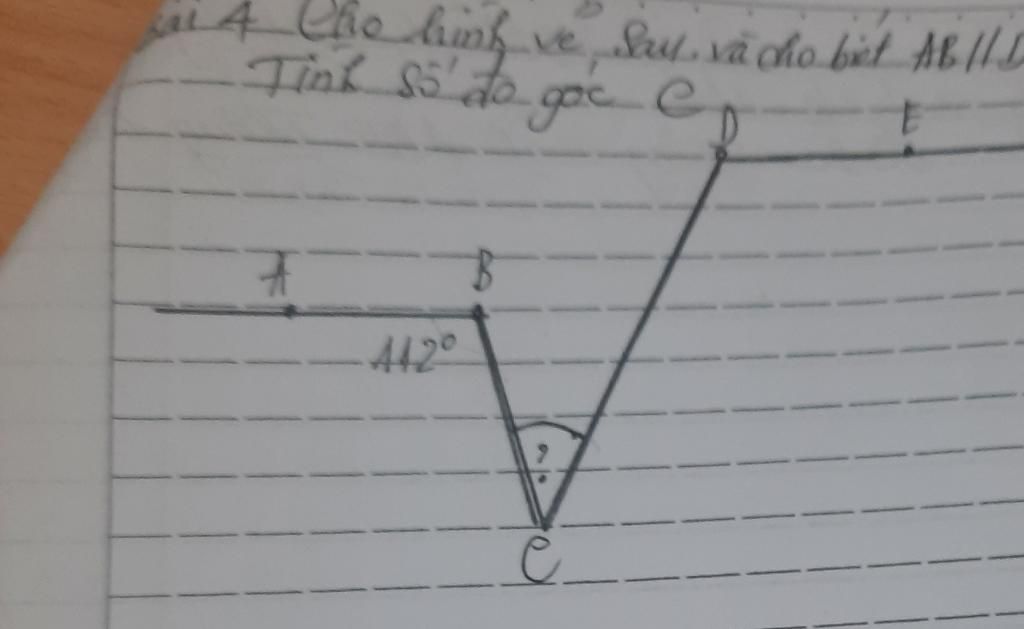 Bài 4 Cho hình vẽ sau và cho biết AB//D
Tính số đo góc C
D
E
A
B
112°
?
C